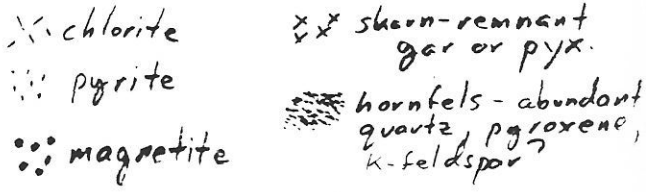 chlorite
pyrite
magnetite
skarn-remnant
gar or pyx.
hornfels - abundant
quartz, pyroxene,
K-feldspar?